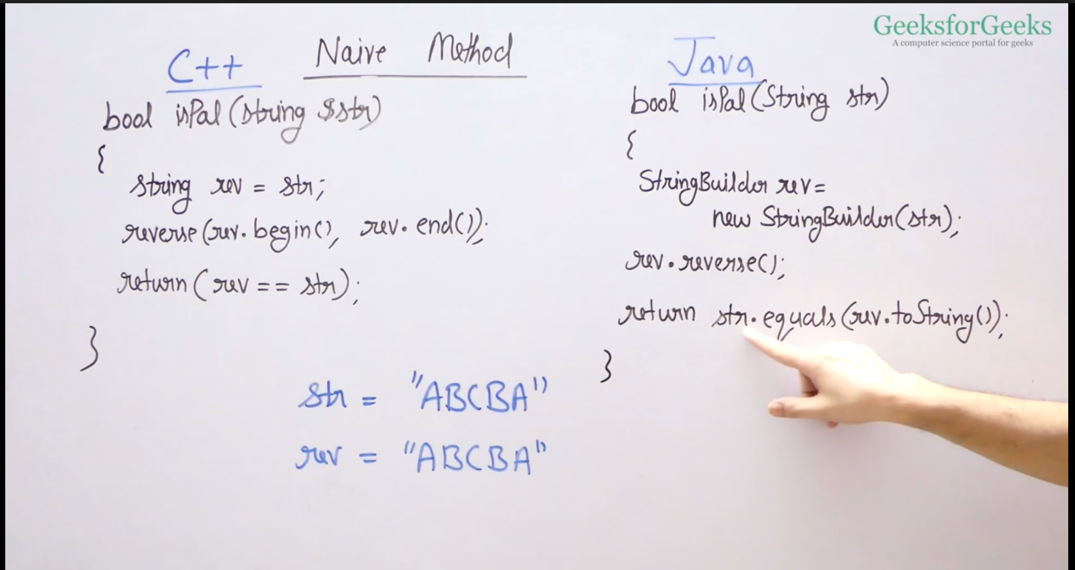 GeeksforGeeks
A computer science portal for geeks
Naive Method
C++
bool isPal(String $str)
{
string rev = str;
reverse(rev.begin(), rev.end());
return(rev == str);
}
Java
bool isPal(String str)
{
StringBuilder rev=
new StringBuilder(str);
rev.reverse();
return str.equals(rev.toString());
}
str = "ABCBA"
rev = "ABCBA"